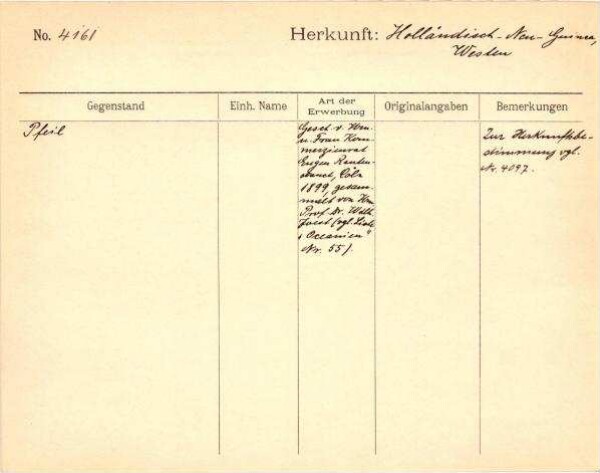 No. 4161
Herkunft: Holländisch-Neu-Guinea,
Westen
Gegenstand
Einh. Name
Art der
Erwerbung
Originalangaben
Bemerkungen
Pfeil
Gesch. v. Hrn.
u. Frau Kom-
merzienrat
Eugen Rauten-
strauch, Cöln
1899, gesam-
melt von Hrn
Prof. Dr. Wilh.
Joest (vgl. Liste
"Oceanien"
Nr. 55).
Zur Herkunftsbe-
stimmung vgl.
Nr. 4097.